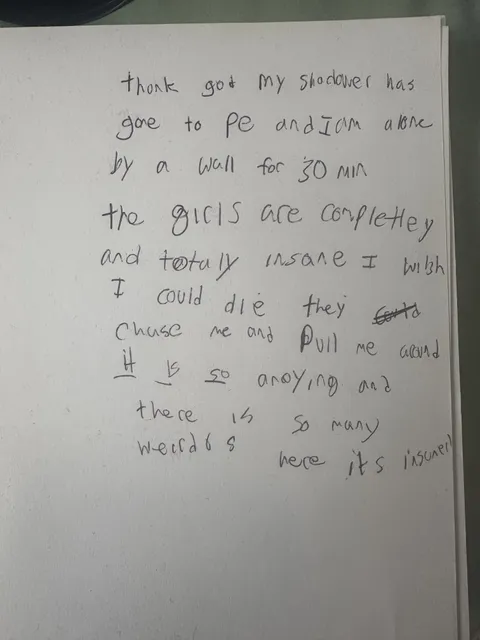 thonk god my shodower has
gone to Pe and I am alone
by a wall for 30 min
the girls are completley
and totaly insane I wish
I could die they could
chase me and Pull me around
It is so anoying and
there is so many
weirdos here its insane